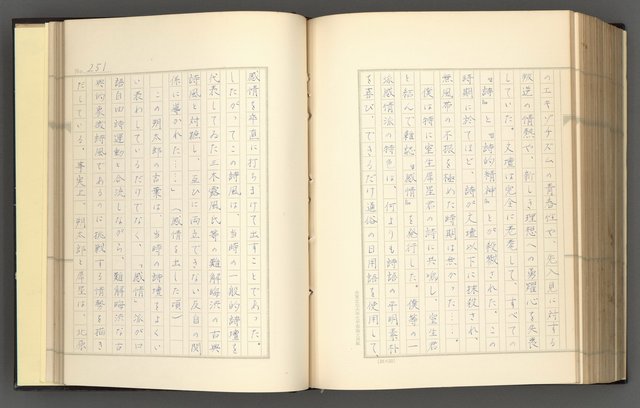 のエキゾチズムの青春性や、先入見に対する
叛逆の情熱や、新しき理想への勇躍心を失喪
していた。文壇は完全に老衰して、すべての
『詩』と『詩的精神』とが殺戮された。この
時期に於てほど、詩が文壇以下に抹殺され、
無風帯の不振を極めた時期は無かった……。
僕は特に室生犀星君の詩に共鳴し、室生君
と結んで雑誌『感情』を発行した。僕等の一
派感情派の特色は、何よりも詩語の平明素朴
を喜び、できるだけ通俗の日用語を使用して、
No. 251
感情を率直に打ちまけて出すことであった。
したがってこの詩風は、当時の一般的詩壇を
代表してゐた三木露風氏等の難解晦渋の古典
詩風と対蹠し、互ひに両立できない反目の関
係に導かれた……」（感情を出した頃）
この朔太郎の言葉は、当時の詩壇をよくい
い表わしているだけでなく、『感情』派が口
語自由詩運動と合流しながら、難解晦渋な古
典的象徴詩風であるのに挑戦する情勢を描き
だしている。事実上、朔太郎と犀星は、北原